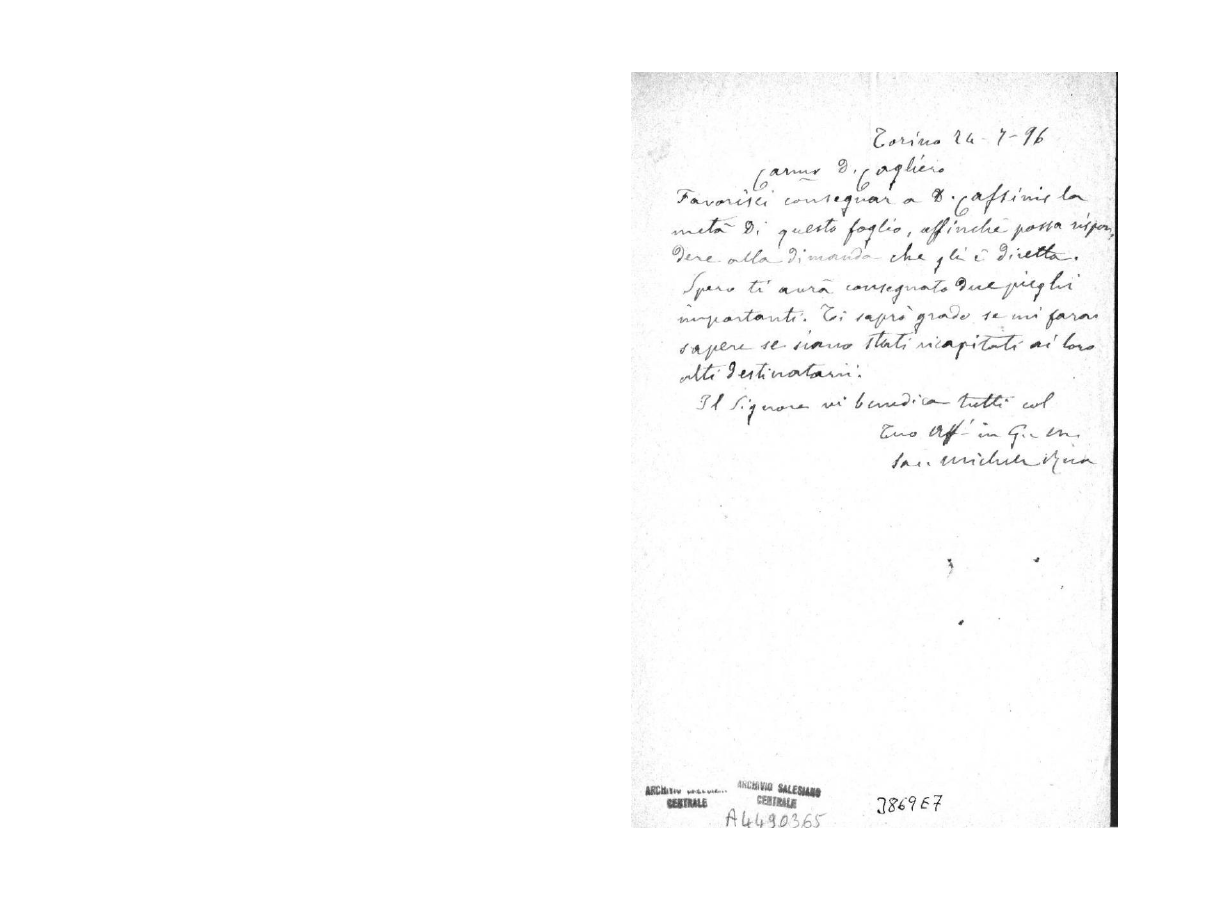 Torino 24-7-96
Carmo D. Cagliero
Favorisci consegnar a D. Cassinis la
metà di questo foglio, affinchè possa rispon,
dere alla dimanda che gli è diretta.
Spero ti avrà consegnato due pieghi
importanti. Ti saprò grado se mi farai
sapere se siano stati ricapitati ai loro
alti destinatarii.
Il Signore vi benedica tutti col
Tuo Aff in G. e M.
Sac. Michele Rua
ARCHIVIO
CENTRALE
ARCHIVIO SALESIANO
CENTRALE
A4490365
3869E7